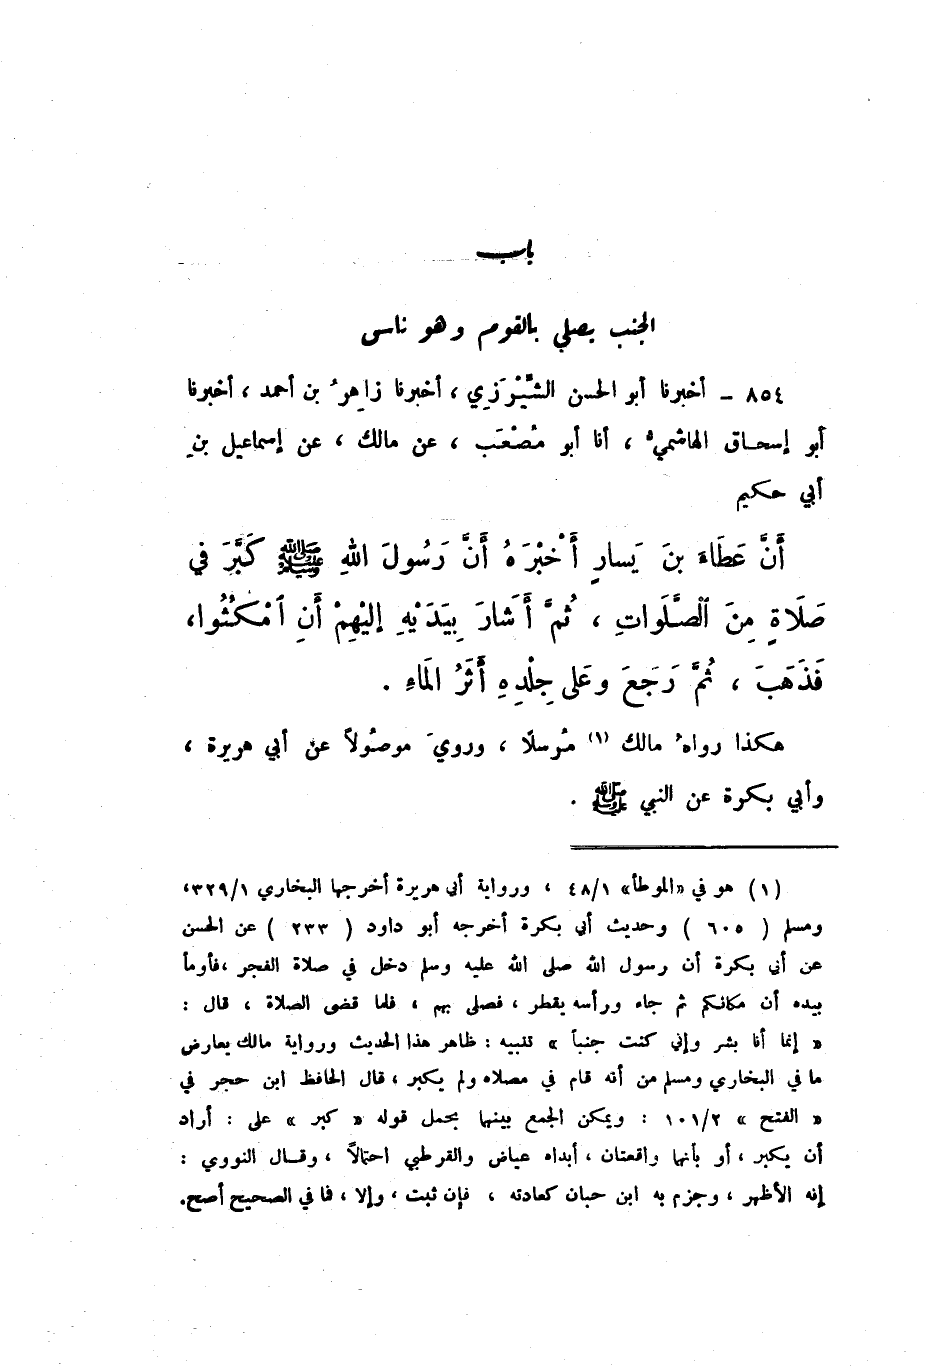 باب
الجنب يصلي بالقوم وهو ناسي
٨٥٤ ـ أخبرنا أبو الحسن الشَّيْرَزِي ، أخبرنا زاهِرُ بن أحمد ، أخبرنا
أبو إسحاق الهاشميُّ ، أنا أبو مُصْعَب ، عن مالك ، عن إسماعيل بنِ
أبي حكيم
أَنَّ عَطَاءَ بنَ يَسارٍ أَخْبَرَهُ أَنَّ رَسُولَ اللهِ ﷺ كَبَّرَ في
صَلَاةٍ مِنَ ٱلصَّلَواتِ ، ثُمَّ أَشارَ بِيَدَيْهِ إليْهِمْ أَنِ ٱمْكُثُوا،
فَذَهَبَ ، ثُمَّ رَجَعَ وعَلى جِلْدِهِ أَثَرُ المَاءِ .
هكذا رواهُ مالك (١) مُرسلًا ، ورويَ موصُولاً عن أبي هريرة ،
وأبي بكرة عن النبي ﷺ .
(١) هو في «الموطأ» ٤٨/١ ، ورواية أبي هريرة أخرجها البخاري ٣٢٩/١،
ومسلم ( ٦٠٥ ) وحديث أبي بكرة أخرجه أبو داود ( ٢٣٣ ) عن الحسن
عن أبي بكرة أن رسول الله صلى الله عليه وسلم دخل في صلاة الفجر ،فأومأ
بيده أن مكانكم ثم جاء ورأسه يقطر ، فصلى بهم ، فلما قضى الصلاة ، قال :
« إنما أنا بشر وإني كنت جنباً » تنبيه : ظاهر هذا الحديث ورواية مالك يعارض
ما في البخاري ومسلم من أنه قام في مصلاه ولم يكبر ، قال الحافظ ابن حجر في
« الفتح » ١٠١/٢ : ويمكن الجمع بينهما بحمل قوله « كبر » على : أراد
أن يكبر ، أو بأنها واقعتان ، أبداه عياض والقرطبي احتمالاً ، وقال النووي :
إنه الأظهر ، وجزم به ابن حبان كعادته ، فإن ثبت ، وإلا ، فما في الصحيح أصح.